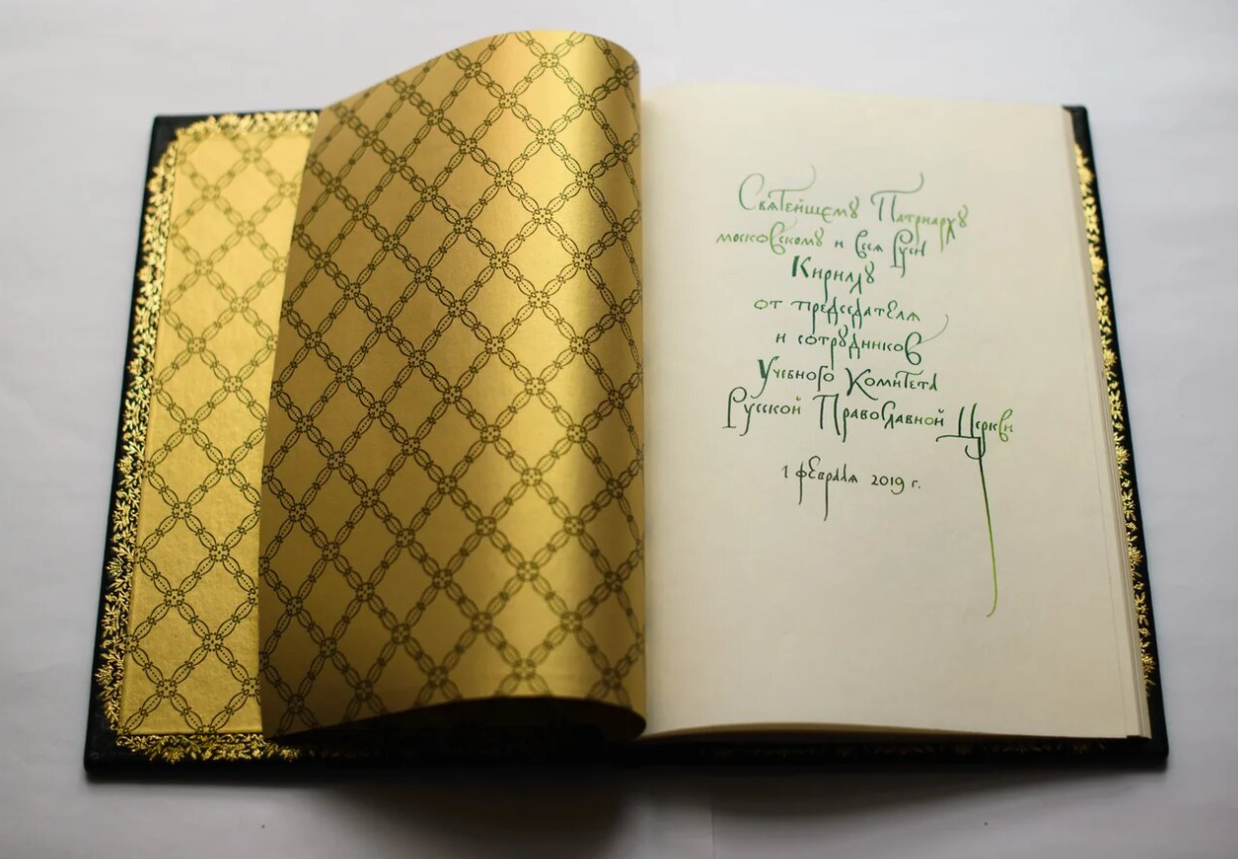 Святейшему Патриарху
московскому и всея Руси
Кириллу
от председателя
и сотрудников
Учебного Комитета
Русской Православной Церкви
1 февраля 2019 г.